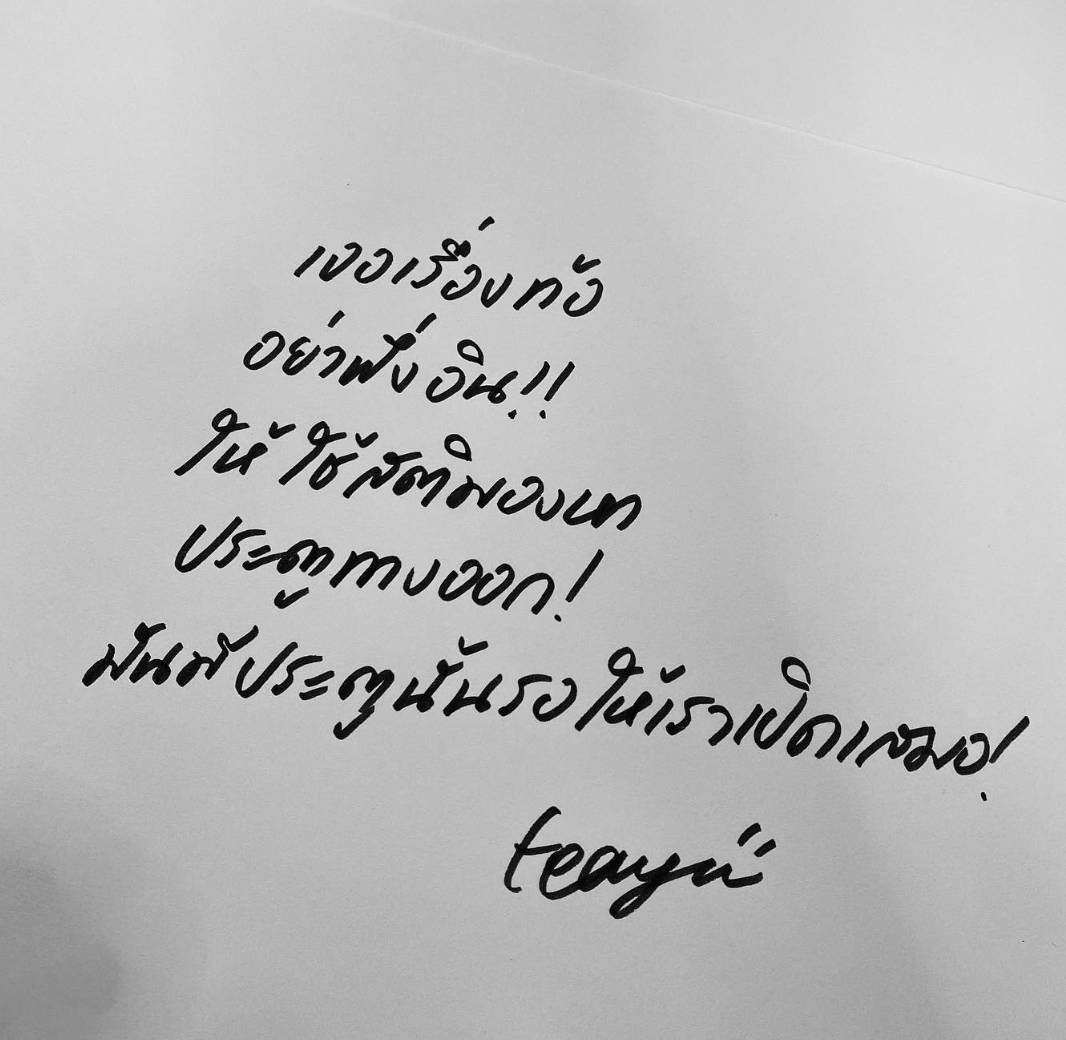 เจอเรื่องท้อ
อย่าพึ่งอิน!!
ให้ใช้สติมองหา
ประตูทางออก!
มันมีประตูนั้นรอให้เราเปิดเสมอ!